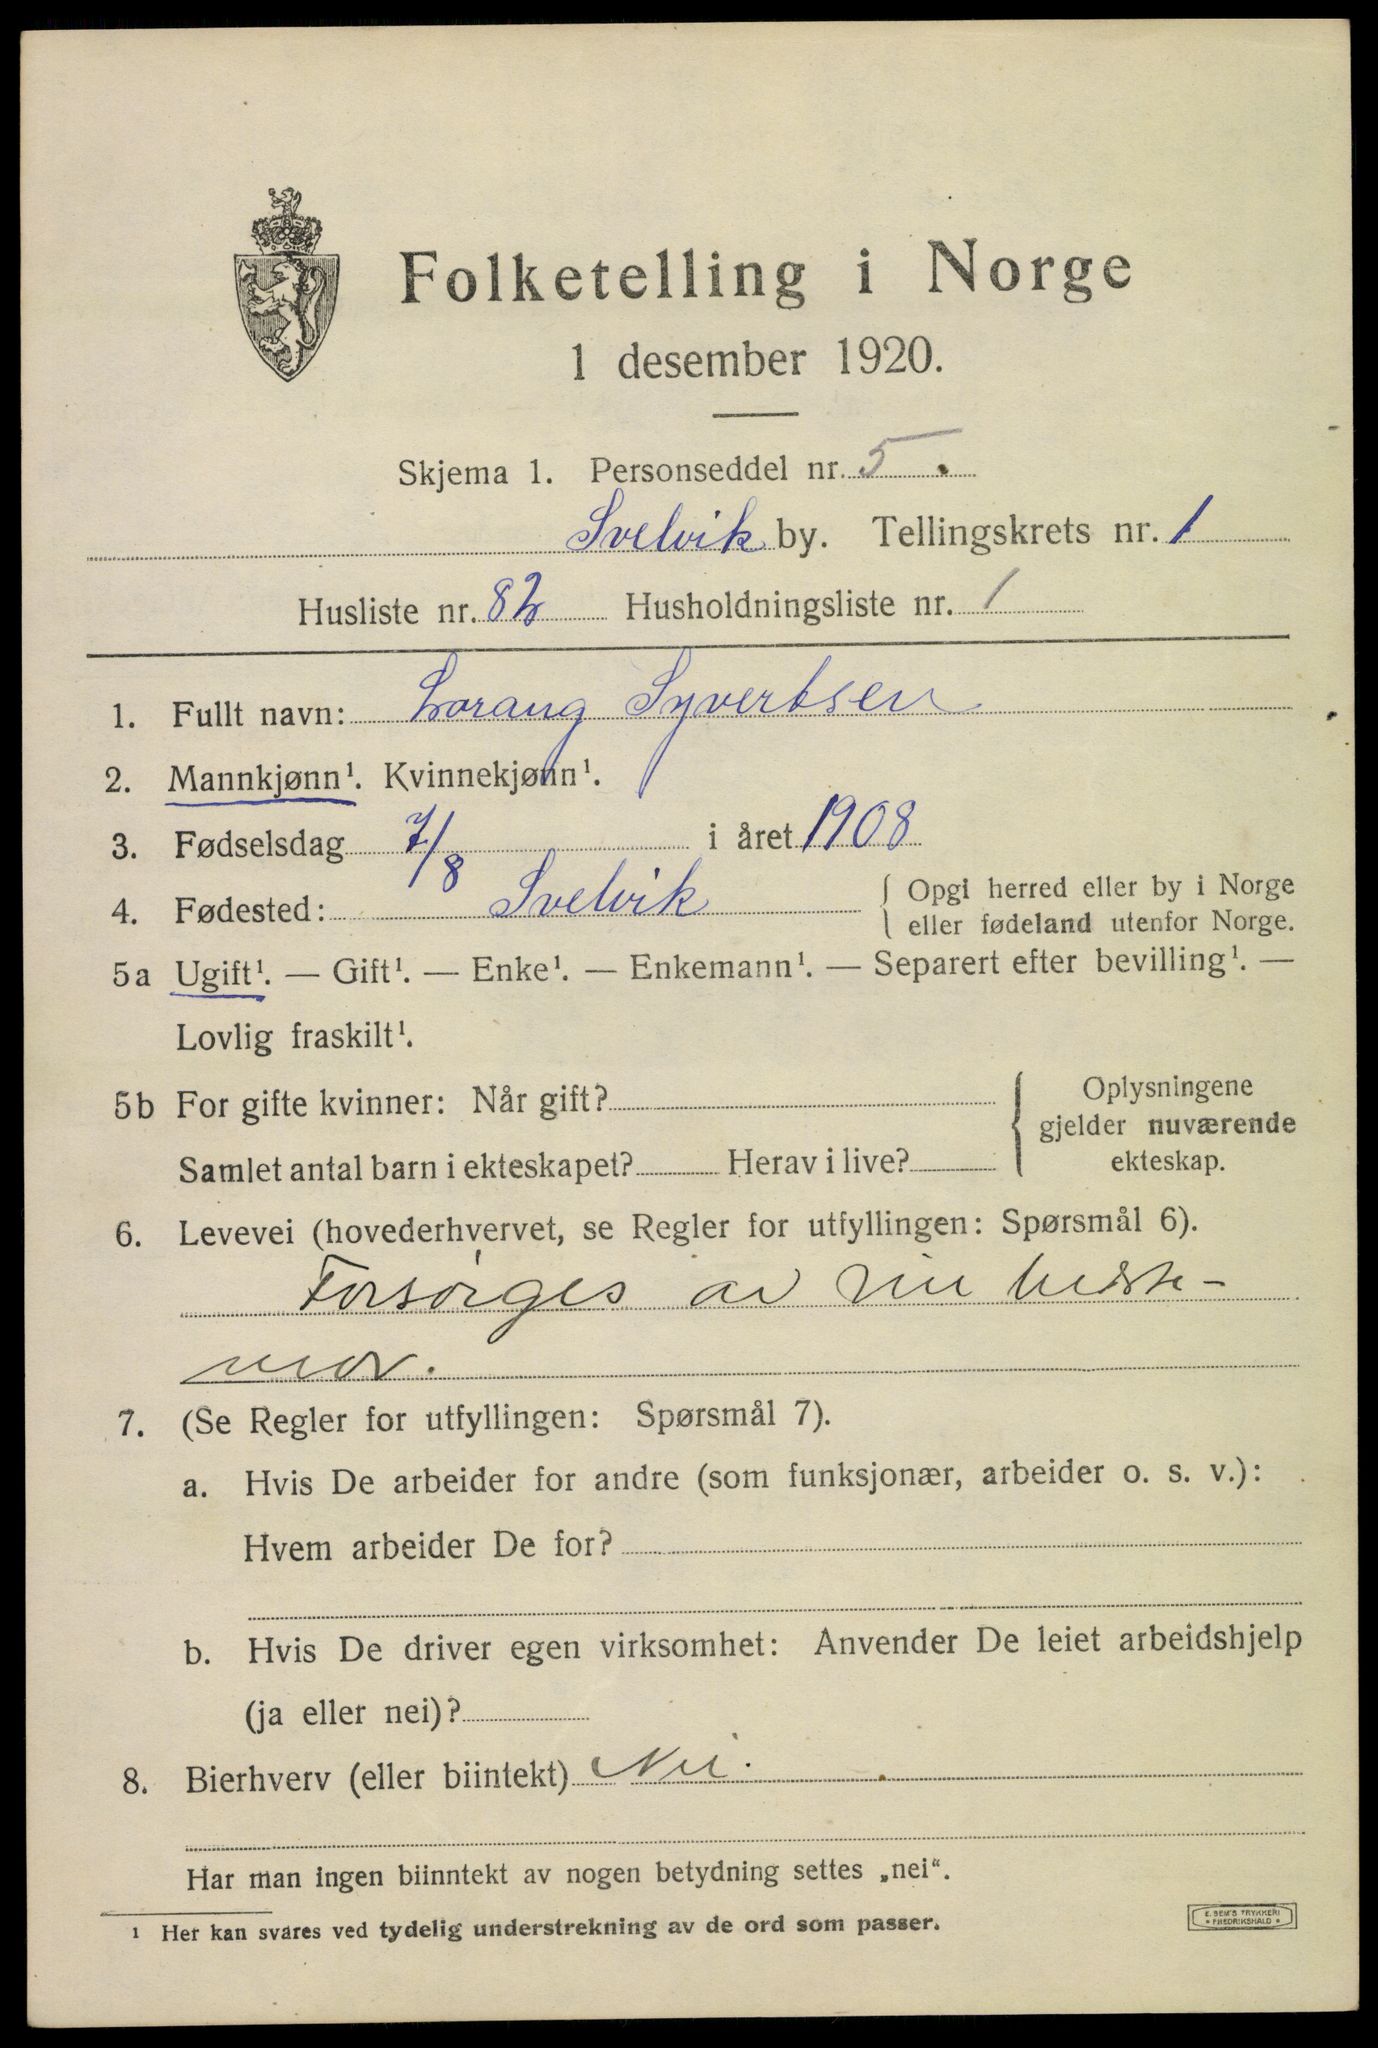 Folketelling i Norge
1 desember 1920.
Skjema 1. Personseddel nr. 5.
Svelvik by. Tellingskrets nr. 1
Husliste nr. 82 Husholdningsliste nr. 1
1. Fullt navn: Lorang Syvertsen
2. Mannkjønn¹. Kvinnekjønn¹.
3. Fødselsdag 7/8 i året 1908
4. Fødested: Svelvik { Opgi herred eller by i Norge
eller fødeland utenfor Norge.
5a Ugift¹. — Gift¹. — Enke¹. — Enkemann¹. — Separert efter bevilling¹. —
Lovlig fraskilt¹.
5b For gifte kvinner: Når gift?
Samlet antal barn i ekteskapet? Herav i live?
{ Oplysningene
gjelder nuværende
ekteskap.
6. Levevei (hovederhvervet, se Regler for utfyllingen: Spørsmål 6).
Forsørges av sin beste-
mor.
7. (Se Regler for utfyllingen: Spørsmål 7).
a. Hvis De arbeider for andre (som funksjonær, arbeider o. s. v.):
Hvem arbeider De for?
b. Hvis De driver egen virksomhet: Anvender De leiet arbeidshjelp
(ja eller nei)?
8. Bierhverv (eller biintekt) Nei.
Har man ingen biinntekt av nogen betydning settes „nei“.
¹ Her kan svares ved tydelig understrekning av de ord som passer.
E. SEM'S TRYKKERI
• FREDRIKSHALD •